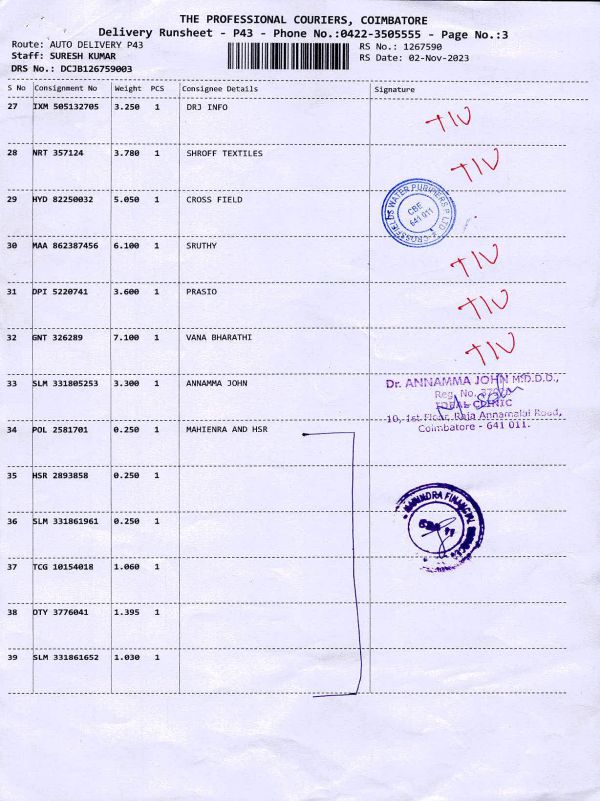 THE PROFESSIONAL COURIERS, COIMBATORE
Delivery Runsheet - P43 - Phone No.:0422-3505555 - Page No.:3
Route: AUTO DELIVERY P43
RS No.: 1267590
Staff: SURESH KUMAR
RS Date: 02-Nov-2023
DRS No.: DCJB126759003
S No Consignment No Weight PCS Consignee Details Signature
27 IXM 505132705 3.250 1 DRJ INFO
28 NRT 357124 3.780 1 SHROFF TEXTILES
29 HYD 82250032 5.050 1 CROSS FIELD
CROSSFIELDS WATER PURIFIERS P LTD
CBE
641 011
30 MAA 862387456 6.100 1 SRUTHY
31 DPI 5220741 3.600 1 PRASIO
32 GNT 326289 7.100 1 VANA BHARATHI
33 SLM 331805253 3.300 1 ANNAMMA JOHN
Dr. ANNAMMA JOHN M.D.D.D.,
Reg. No.
IDEAL CLINIC
10, 1st Floor, Raja Annamalai Road,
Coimbatore - 641 011.
34 POL 2581701 0.250 1 MAHIENRA AND HSR
35 HSR 2893858 0.250 1
MAHINDRA FINANCIAL
36 SLM 331861961 0.250 1
37 TCG 10154018 1.060 1
38 OTY 3776041 1.395 1
39 SLM 331861652 1.030 1